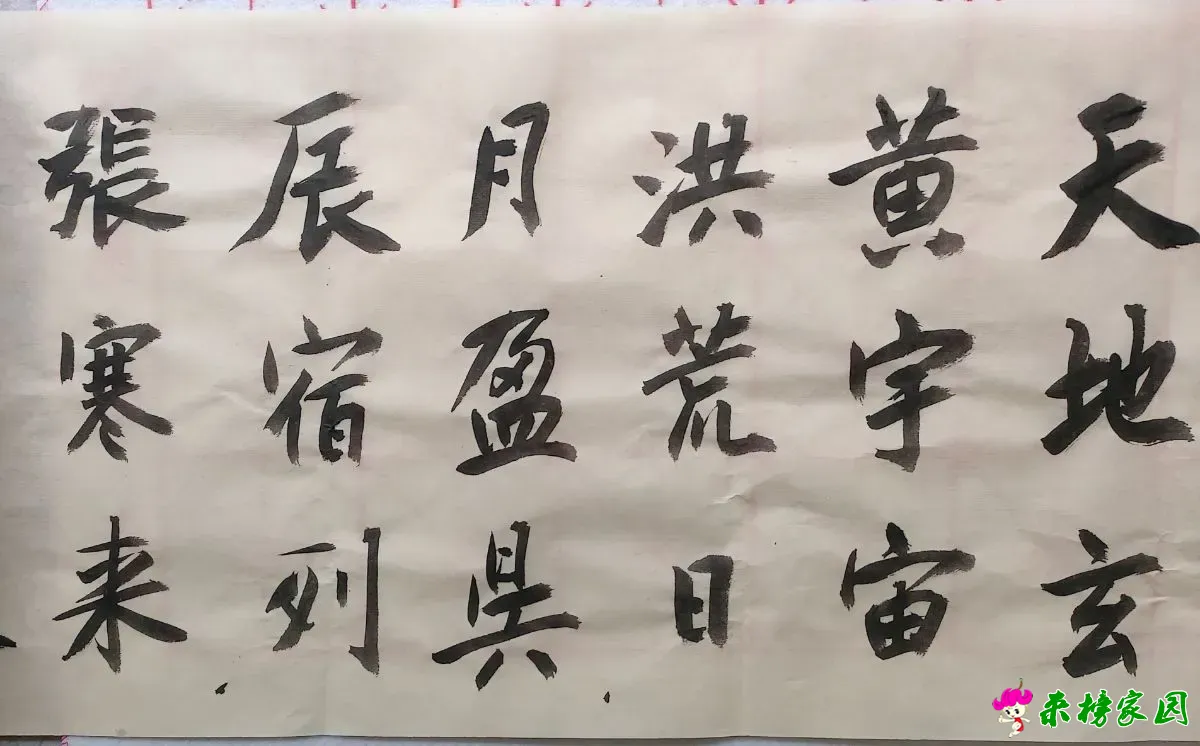 天地玄
黄宇宙
洪荒日
月盈昃
辰宿列
張寒来
来榜家园